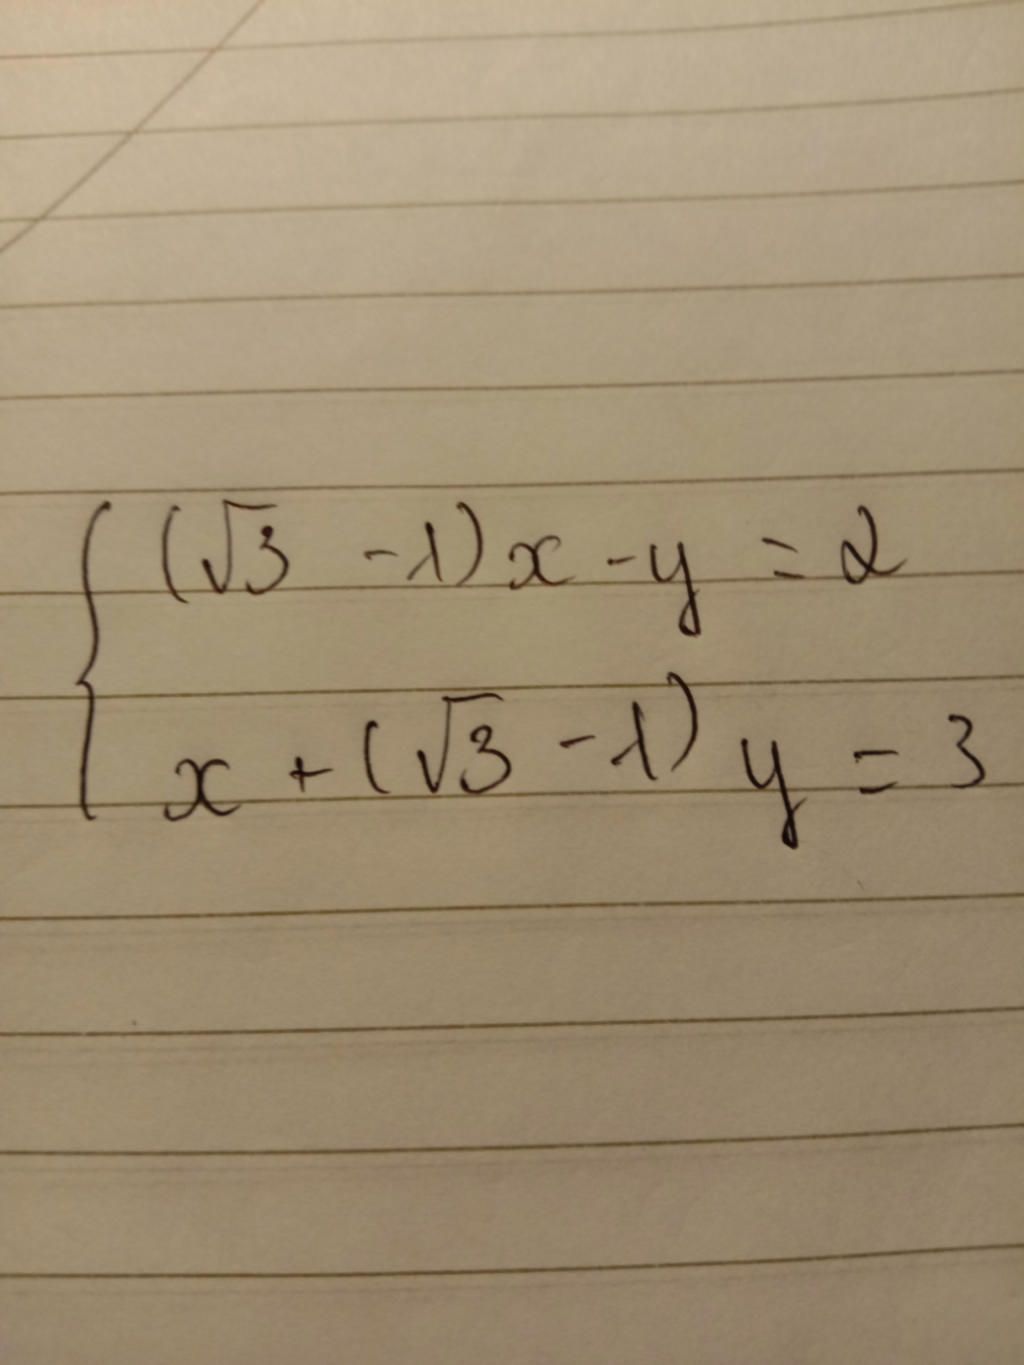 (√3 - 1)x - y = 2
x + (√3 - 1)y = 3